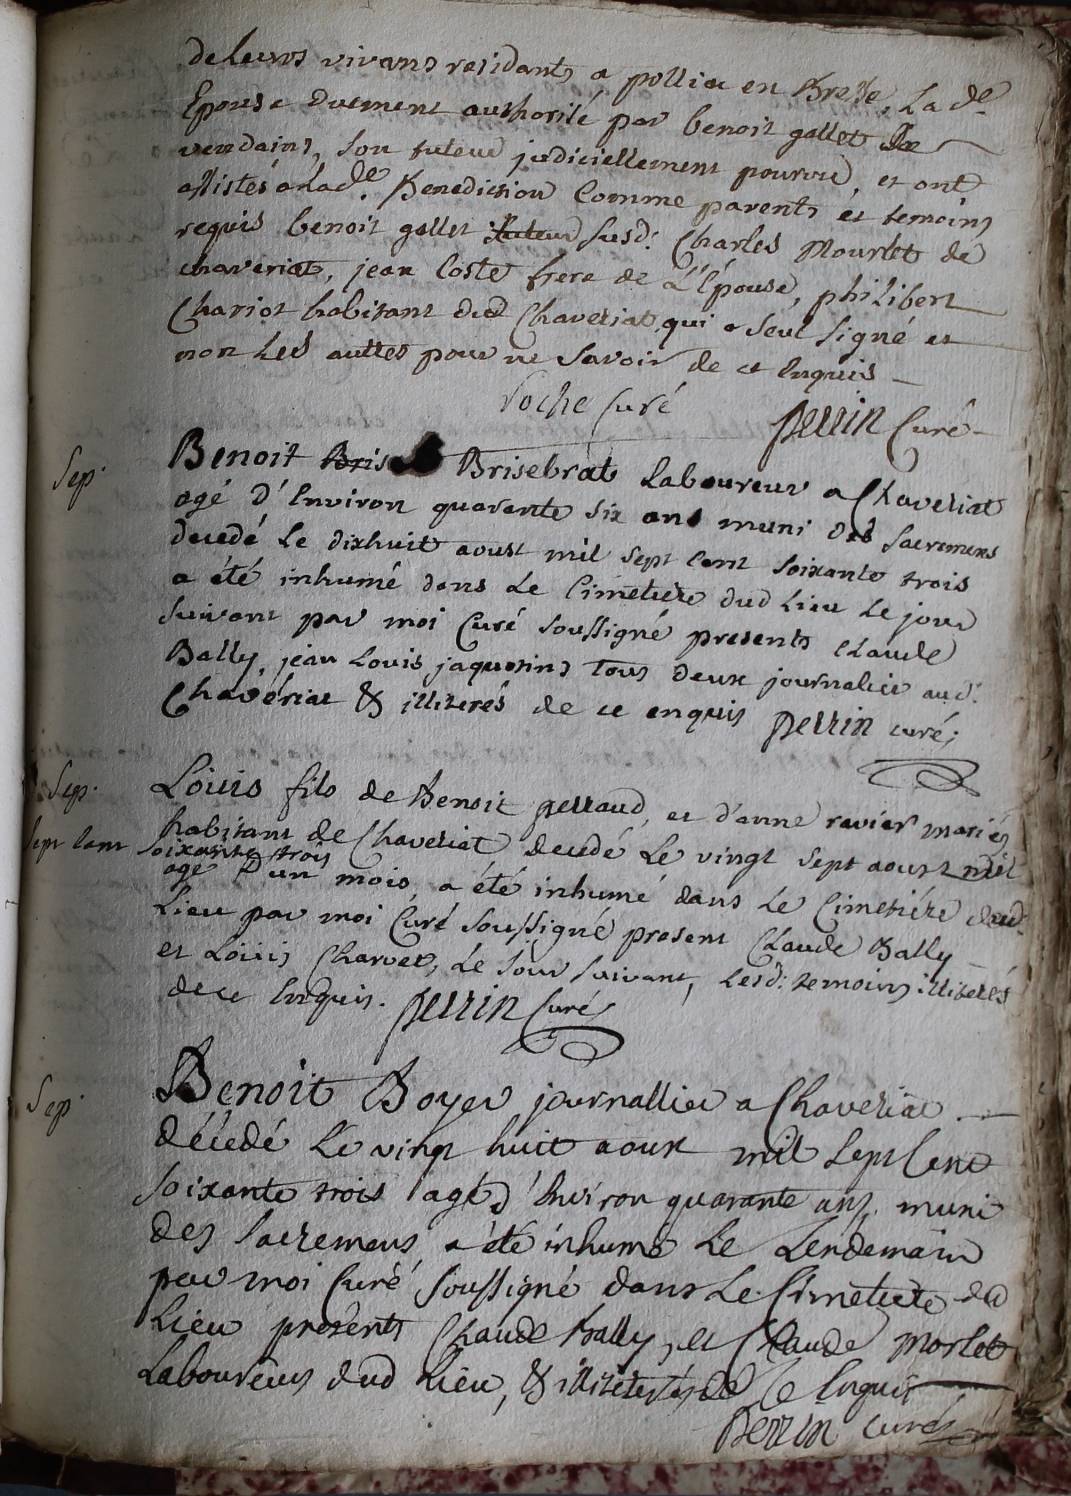 deleurs vivans residants a polliat en Bresse, La de
Epouse duement authorisé par benoit gallet De
vendains, son tuteur judiciellement pourvu, et ont
assistés a Lade Benediction Comme parents et temoins
requis benoit gallet tuteur susd: Charles Mourlet de
chaveriat, jean Coste frere de L'Épouse, philibert
Chariot habitant dud Chaveriat, qui a seul signé et
non Les autres pour ne savoir de ce Enquis
roche Curé
perrin Curé
Sep.
Benoit Bris Brisebrat Laboureur a Chaveriat
agé d'Environ quarante six ans muni des Sacremens
decedé Le dixhuit aoust mil sept Cent soixante trois
a été inhumé dans Le Cimetiere dud Lieu Le jour
suivant par moi Curé soussigné presents Claude
Bally, jean Louis jaquesins tous deux journalier aud:
Chavériat & illiterés de ce enquis perrin curé;
Sep.
Louis fils de Benoit perraud, et d'anne ravier mariés
habitant de Chaveriat decedé Le vingt sept aoust mil
sept Cent soixante trois
agé d'un mois, a été inhumé dans Le Cimetiére dud.
Lieu par moi Curé soussigné present Claude Bally
et Louis Charvet, Le jour suivant, Lesd: temoins illiterés
de ce Enquis. perrin Curé
Sep.
Benoit Boyer journallier a Chaveriat
décedé Le vingt huit aoust mil sept Cent
soixante trois agé d'Environ quarante ans. muni
des Sacremens a été inhumé Le Lendemain
par moi Curé soussigné dans Le Cimetiere dud
Lieu présents Claude Bally, et Claude Morlet
Laboureurs dud Lieu, & illiterés de Ce Enquis
Perrin curé